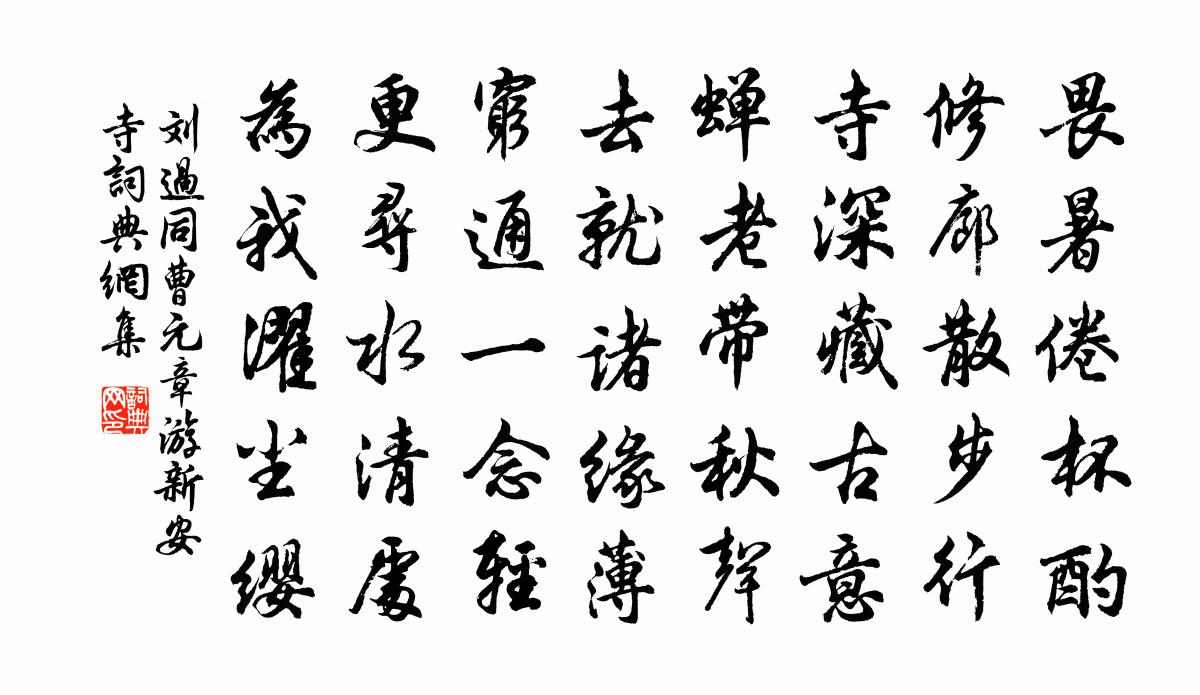 畏暑倦杯酌
修廊散步行
寺深藏古意
蝉老带秋声
去就诸缘薄
穷通一念轻
更寻水清处
為我濯尘缨
刘過同曹元章游新安
寺詞典網集
詞典网印